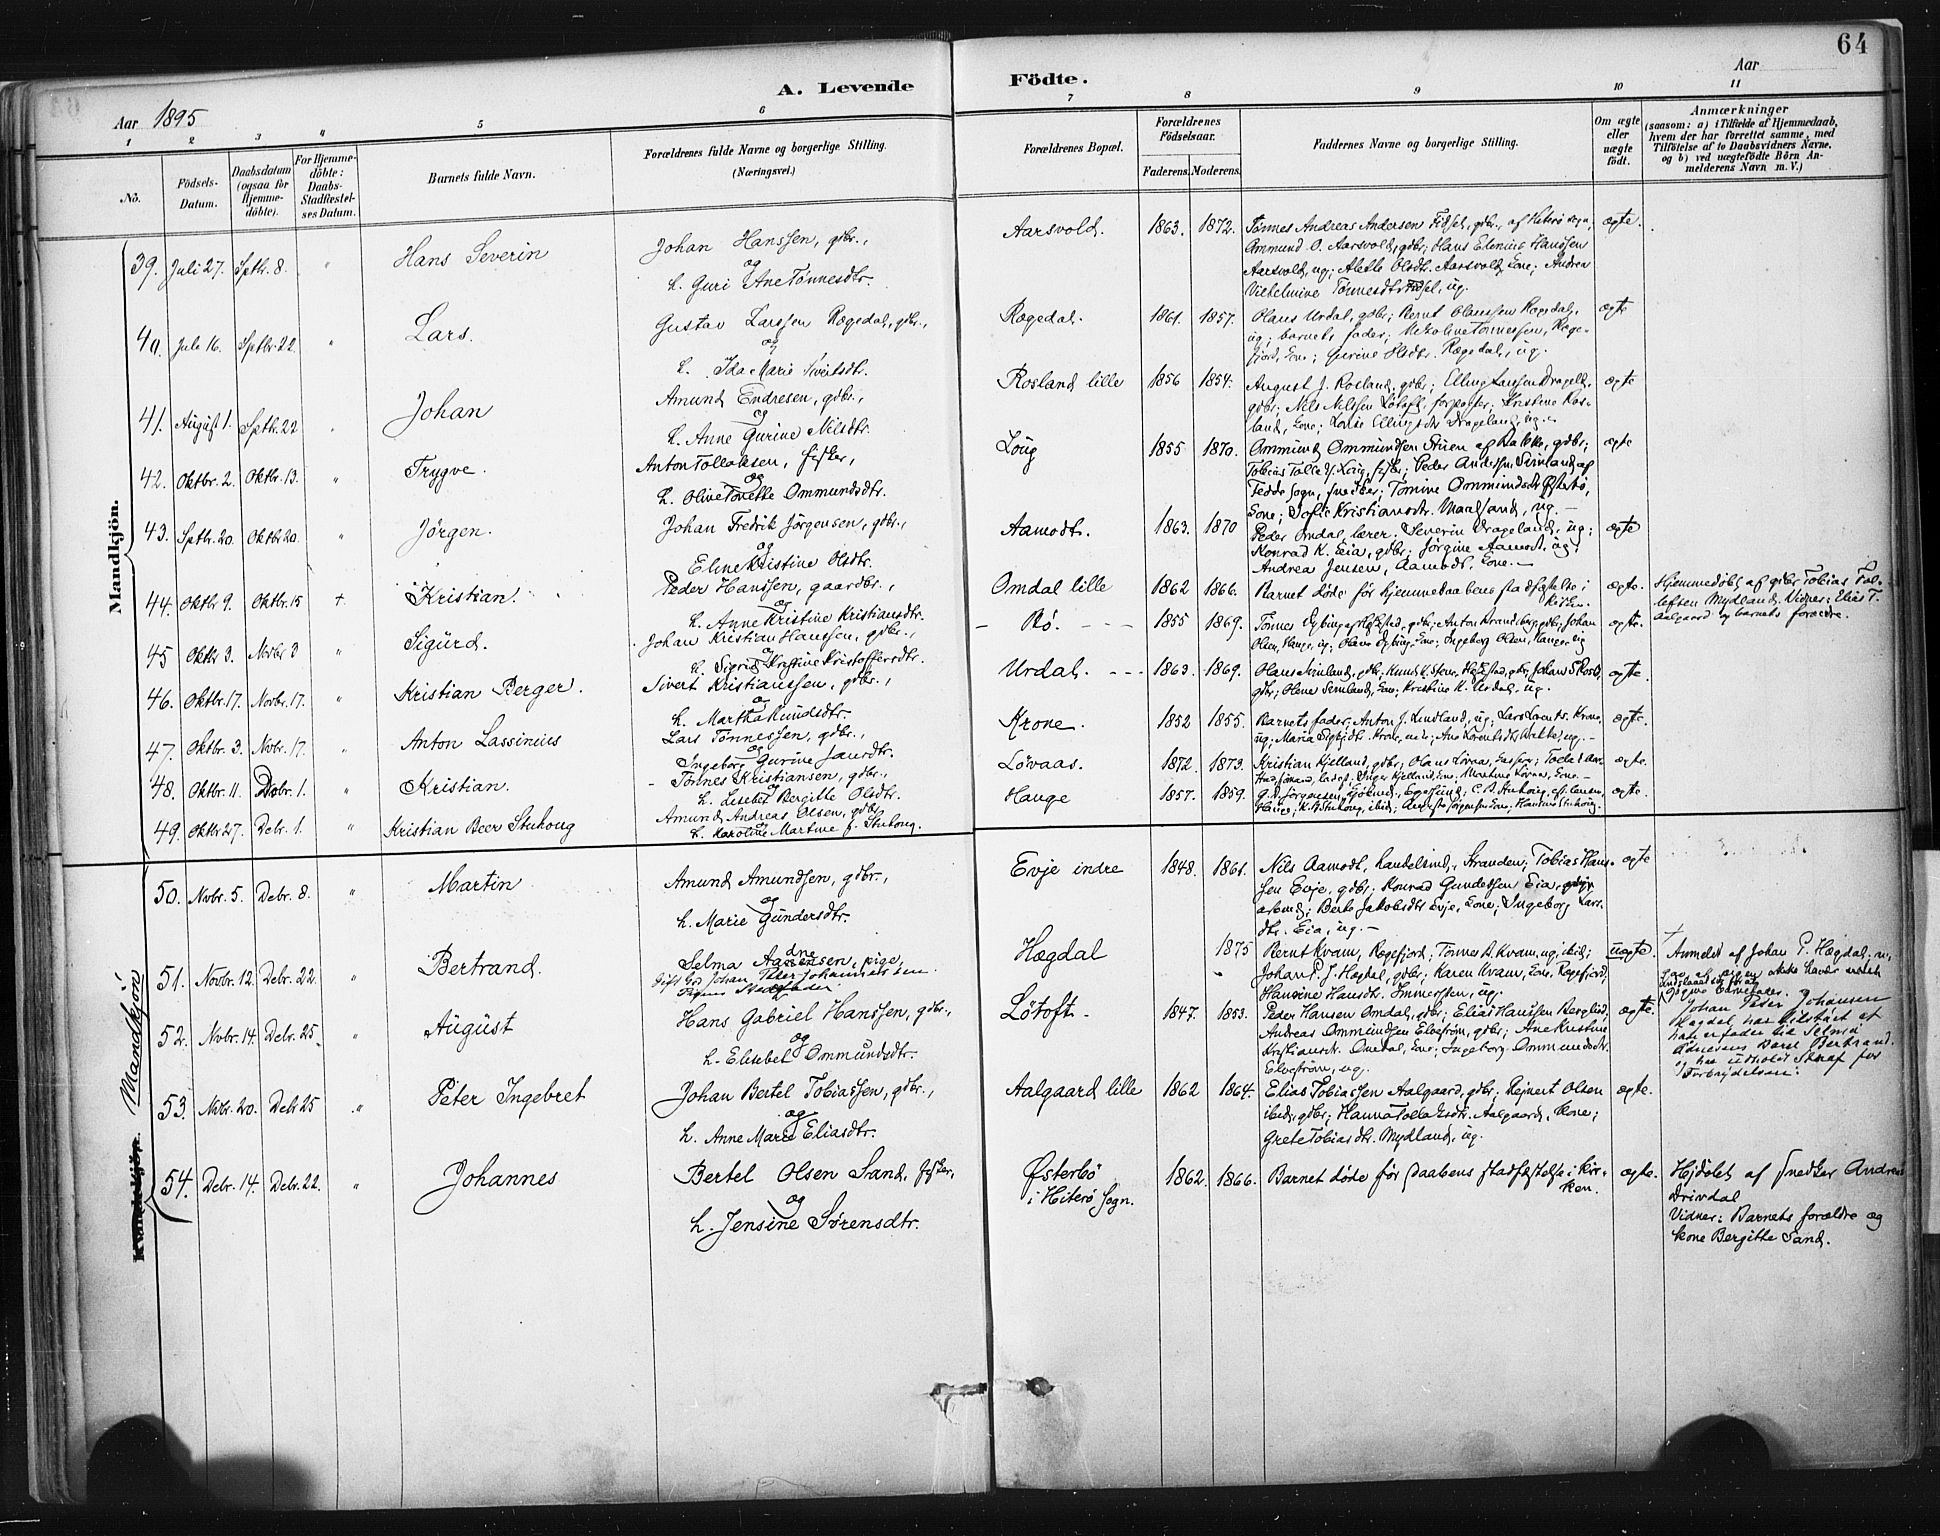 64
A. Levende Födte.
Aar 1895
Aar
1 2 3 4 5 6 7 8 9 10 11
No.
Födsels-Datum.
Daabsdatum (ogsaa for Hjemmedöbte).
For Hjemmedöbte: Daabs-Stadfæstelses Datum.
Barnets fulde Navn.
Forældrenes fulde Navne og borgerlige Stilling. (Næringsvei.)
Forældrenes Bopæl.
Forældrenes Födselsaar.
Faderens. Moderens.
Faddernes Navne og borgerlige Stilling.
Om ægte eller uægte födt.
Anmærkninger
(saasom: a) i Tilfælde af Hjemmedaab, hvem der har forrettet samme, med Tilföielse af to Daabsvidners Navne, og b) ved uægtefödte Börn Anmelderens Navn m. V.)
Mandkjön.
39. Juli 27. Sptbr. 8. " Hans Severin
Johan Hanssen, gdbr.,
og
h. Guri Ane Tønnesdtr.
Aarsvold. 1863. 1872.
Tønnes Andreas Andersen Fidsel, gdbr., af Hiterø sogn,
Ommund O. Aarsvold, gdbr; Hans Elenius Hanssen
Aarsvold, ug; Alette Olsdtr. Aarsvold, Kone; Andrea
Vilhelmine Tønnesdtr Fidsel, ug.
ægte.
40. Jule 16. Sptbr. 22. " Lars.
Gustav Larssen Rægedal, gdbr.,
og
h. Ida Marie Sivertsdtr.
Rægedal. 1861. 1857.
Olaus Urdal, gdbr; Bernt Olaussen Rægedal,
ug; barnets fader;
Gurine Olsdtr. Rægedal, ug.
ægte
41. August 1. Sptbr. 22 " Johan
Amund Endresen, gdbr.,
og
h. Anne Gurine Nilsdtr.
Rosland lille 1856 1854.
August J. Rosland, gdbr; Elling Larssen Drageld,
gdbr; Nils Nilssen Løtoft, forpagter; Kristine Ros-
land, Kone; Lovise Ellingsdtr Drageland, ug.
ægte
42. Oktbr. 2. Oktbr. 13. " Trygve.
Anton Tollaksen, fisker,
og
h. Olive Tonette Ommundsdtr.
Løug 1855 1870.
Ommund Ommundsen Stuen af Bakke, gdbr;
Tobias Tolleds. Løug, fisker; Peder Anderssen Sirnland af
Fedde sogn, snedker; Tomine Ommundsdtr Østerbø,
Kone; Sofie Kristiansdtr. Maalsand, ug.
ægte
43. Sptbr. 20. Oktbr 20. " Jørgen.
Johan Fredrik Jørgensen, gdbr.,
og
Eline Kristine Olsdtr.
Aamodt. 1863. 1870
Peder Omdal, lærer. Severin Drageland, ug;
Konrad K. Eia, gdbr; Jørgine Aamodt, ug;
Andrea Jensen, Aamodt, Kone.
ægte
44. Oktbr 9. Oktbr. 15 + Kristian.
Peder Hanssen, gaardbr.,
og
h. Anne Kristine Kristiansdtr.
Omdal lille 1862 1866.
Barnet døde før hjemmedaabens stadfæstelse i
Kirken.
ægte.
Hjemmedøbt af gdbr Tobias Tol-
lefsen Mydland. Vidner: Elias T.
Aalgaard og barnets forældre.
45 Oktbr 3. Novbr 3 " Sigurd.
Johan Kristian Hanssen, gdbr.,
og
h. Sigrid Kristine Kristoffersdtr.
Rø. 1855 1869.
ægte.
46. Oktbr. 17. Novbr. 17. " Kristian Berger.
Sivert Kristianssen, gdbr.,
og
h. Martha Knudsdtr.
Urdal. 1863. 1869.
gdbr; Olene Sirnland, Kone; Kristine K. Urdal, ug.
ægte.
47. Oktbr. 3. Novbr. 17. " Anton Lassinius
Lars Tønnessen, gdbr.,
og
Ingeborg Gurine Jansdtr.
Krone. 1852 1855.
Barnets fader; Anton J. Lindland, ug; Lars Lorents. Krone,
ægte.
48. Oktbr. 11. Debr. 1. " Kristian.
Tønnes Kristiansen, gdbr.,
h. Lisebet Bergitte Olsdtr.
Løvaas. 1872. 1873.
Kristian Kjelland, gdbr; Olaus Løvaas,
Inger Kjelland, Kone; Martine Løvaas, Kone.
ægte.
49. Oktbr 27. Debr. 1. " Kristian Beer Stuhoug
Amund Andreas Olsen, gdbr.
og
h. Karoline Martine f. Stuhoug.
Hauge 1857. 1859.
ægte.
Mandkjön
Kvindekjön.
50. Novbr. 5. Debr. 8. " Martin
Amund Amundsen, gdbr.,
og
h. Marie Gundersdtr.
Evje indre 1848. 1861.
Nils Aamodt, handelsmd., Stranden; Tobias Hans-
sen Evje, gdbr; Konrad Gundersen Eia,
arbmd; Berte Jakobsdtr Evje, Kone; Ingeborg Lars-
dtr. Eia, ug.
ægte
51. Novbr. 12. Debr. 22. " Bertrand.
Selma Aadnesen, pige,
gift Gdr Johan Peter Johannessen
Pigens Stedfader
Hægdal 1875
Bernt Kvam, Rægefjord, Tønnes B. Kvam, ug, ibid;
Johan P. J. Hægdal, gdbr; Karen Kvam, Kone, Rægefjord;
Hansine Hansdtr. Immerstein, ug.
uægte.
Anmeldt af Johan P. Hægdal,
opgive barnefader.
Johan Peter Johansen
Hægdal har tilstaaet at
være fader til Selma
Adnesens Barn Bertrand.
har udholdt Straf for
Forbrydelsen.
52. Novbr. 14. Debr. 25. " August
Hans Gabriel Hanssen, gdbr.,
og
h. Elisebet Ommundsdtr.
Løtoft. 1847. 1853.
Peder Hansen Omdal, gdbr; Elias Hanssen Berglid,
Andreas Ommundsen Elvestrøm, gdbr; Ane Kristine
Kristiansdtr. Omdal, Kone; Ingeborg Ommundsdtr.
Elvestrøm, ug.
ægte.
53. Novbr. 20. Debr 25 " Peter Ingebret
Johan Bertel Tobiassen, gdbr.,
og
h. Anne Marie Eliasdtr.
Aalgaard lille 1862 1864.
Elias Tobiassen Aalgaard, gdbr; Reinert Olsen
ibid, gdbr; Hanna Tollaksdtr. Aalgaard, Kone;
Grete Tobiasdtr. Mydland, ug.
ægte.
54. Debr. 14. Debr. 22. " Johannes
Bertel Olsen Sand, fisker,
og
h. Jensine Sørensdtr.
Østerbø
i Hiterø Sogn. 1862. 1866.
Barnet døde før Daabens stadfæstelse i kir-
ken.
ægte.
Hjdøbt af Snedker Andreas
Drivdal
Vidner: Barnets forældre og
kone Bergitte Sand.